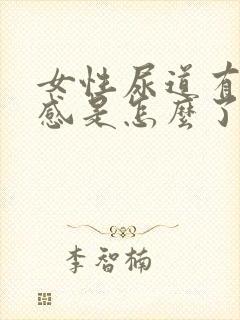 女性尿道有
感是怎麼了
李智楠